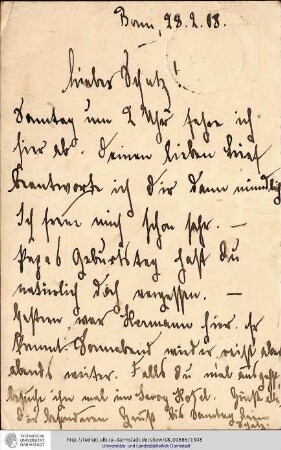 Bonn, 28.2.08.
Lieber Schatz!
Samstag um 2 Uhr fahre ich
hier ab. Deinen lieben Brief
beantworte ich dir dann mündlich
Ich freue mich schon sehr. —
Papas Geburtstag hast Du
natürlich doch vergessen. —
Gestern war Hermann hier. Er
kommt Sonnabend wieder reist aber
abends weiter. Falls du mal ausgehst,
besuche ihn mal im Hotel. Grüße alle
Dir besonderen Gruß bis Samstag Dein
Schatz.
TECHNISCHE
UNIVERSITÄT
DARMSTADT
http://tudigit.ulb.tu-darmstadt.de/show/
Universitäts- und Landesbibliothek Darmstadt